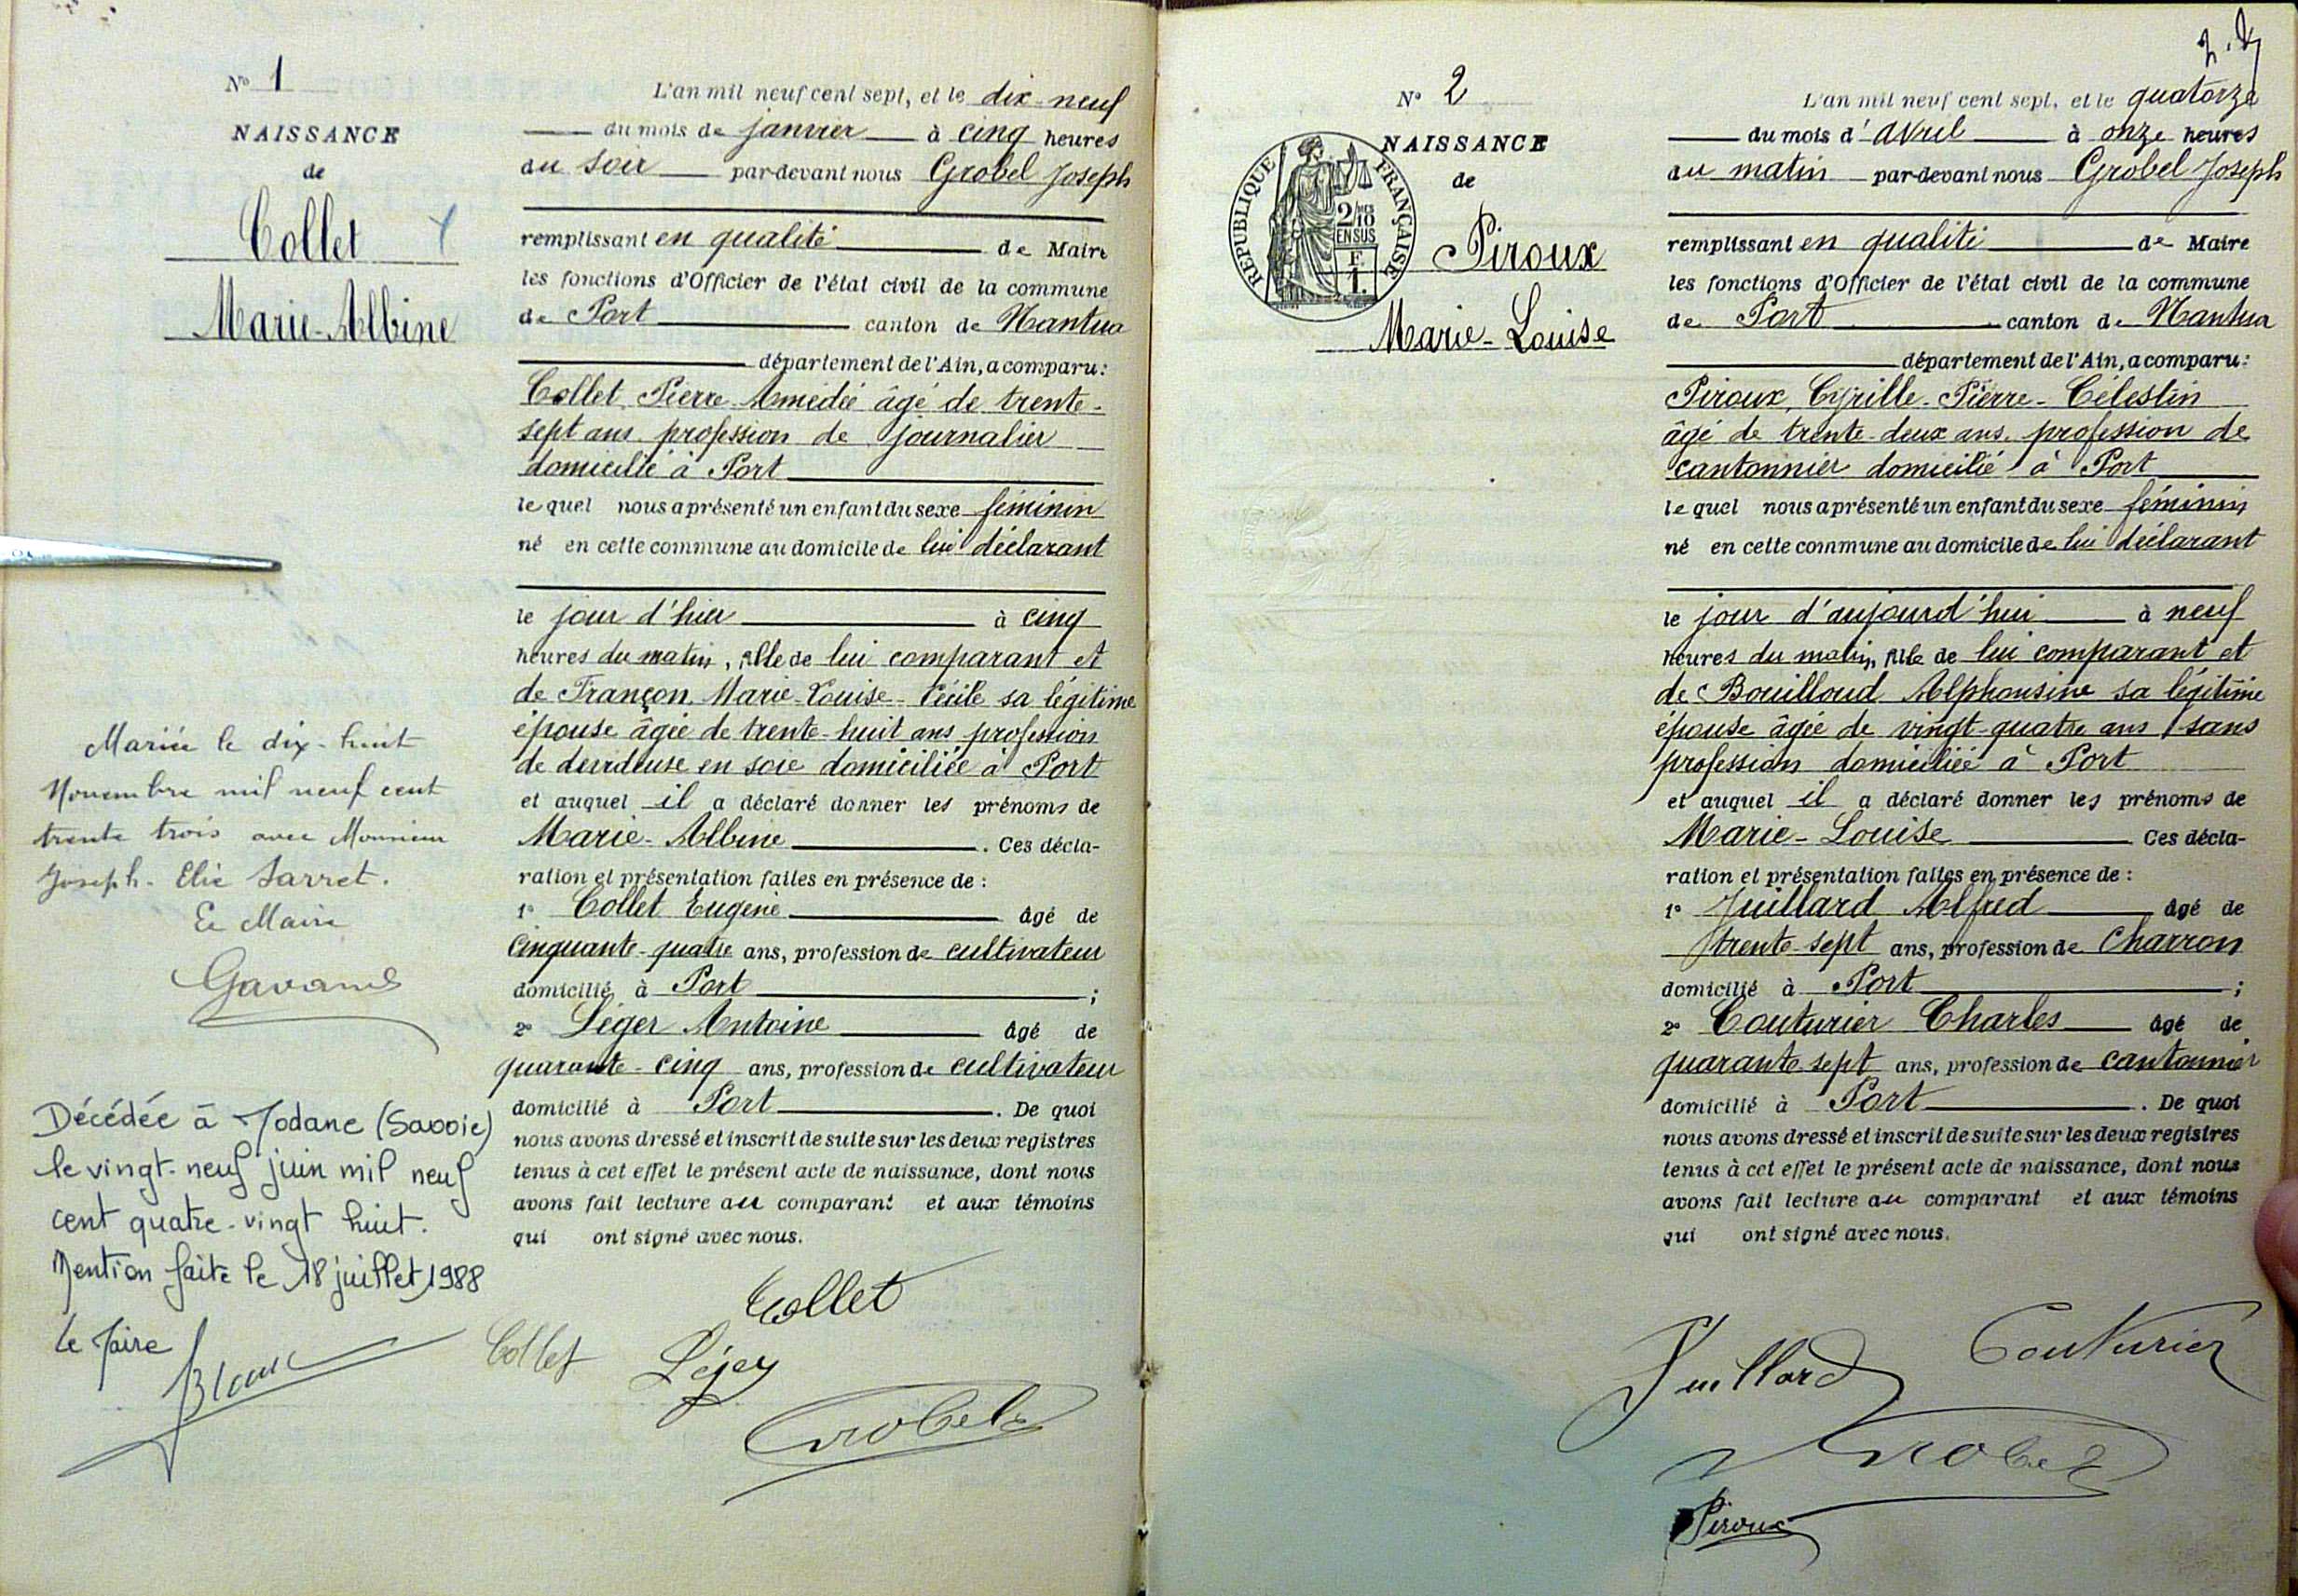 N° 1
NAISSANCE
de
Collet
Marie-Albine
Mariée le dix-huit
Novembre mil neuf cent
trente trois avec Monsieur
Joseph-Elie Sarret.
Le Maire
Décédée à Modane (Savoie)
le vingt-neuf juin mil neuf
cent quatre-vingt huit.
Mention faite le 18 juillet 1988
Le Maire
L'an mil neuf cent sept, et le dix-neuf
du mois de janvier à cinq heures
du soir par-devant nous Grobel Joseph
remplissant en qualité de Maire
les fonctions d'Officier de l'état civil de la commune
de Port canton de Nantua
département de l'Ain, a comparu:
Collet Pierre Amédée âgé de trente-
sept ans profession de journalier
domicilié à Port
le quel nous a présenté un enfant du sexe féminin
né en cette commune au domicile de lui déclarant
le jour d'hier à cinq
heures du matin, fille de lui comparant et
de Françon Marie-Louise-Cécile sa légitime
épouse âgée de trente-huit ans profession
de devideuse en soie domiciliée à Port
et auquel il a déclaré donner les prénoms de
Marie-Albine. Ces décla-
ration et présentation faites en présence de :
1° Collet Eugène âgé de
cinquante-quatre ans, profession de cultivateur
domicilié à Port ;
2° Léger Antoine âgé de
quarante-cinq ans, profession de cultivateur
domicilié à Port. De quoi
nous avons dressé et inscrit de suite sur les deux registres
tenus à cet effet le présent acte de naissance, dont nous
avons fait lecture au comparant et aux témoins
qui ont signé avec nous.
Collet
Collet Léger
Grobel
N° 2
NAISSANCE
de
RÉPUBLIQUE FRANÇAISE
2/10MES
EN SUS
F.
1.
Piroux
Marie-Louise
L'an mil neuf cent sept, et le quatorze
du mois d'avril à onze heures
du matin par-devant nous Grobel Joseph
remplissant en qualité de Maire
les fonctions d'Officier de l'état civil de la commune
de Port canton de Nantua
département de l'Ain, a comparu:
Piroux, Cyrille-Pierre-Célestin
âgé de trente-deux ans, profession de
cantonnier domicilié à Port
le quel nous a présenté un enfant du sexe féminin
né en cette commune au domicile de lui déclarant
le jour d'aujourd'hui à neuf
heures du matin, fille de lui comparant et
de Bouilloud Alphonsine sa légitime
épouse âgée de vingt-quatre ans sans
profession domiciliée à Port
et auquel il a déclaré donner les prénoms de
Marie-Louise Ces décla-
ration et présentation faites en présence de :
1° Juillard Alfred âgé de
trente-sept ans, profession de Charron
domicilié à Port ;
2° Couturier Charles âgé de
quarante sept ans, profession de cantonnier
domicilié à Port. De quoi
nous avons dressé et inscrit de suite sur les deux registres
tenus à cet effet le présent acte de naissance, dont nous
avons fait lecture au comparant et aux témoins
qui ont signé avec nous.
Juillard Couturier
Grobel
Piroux